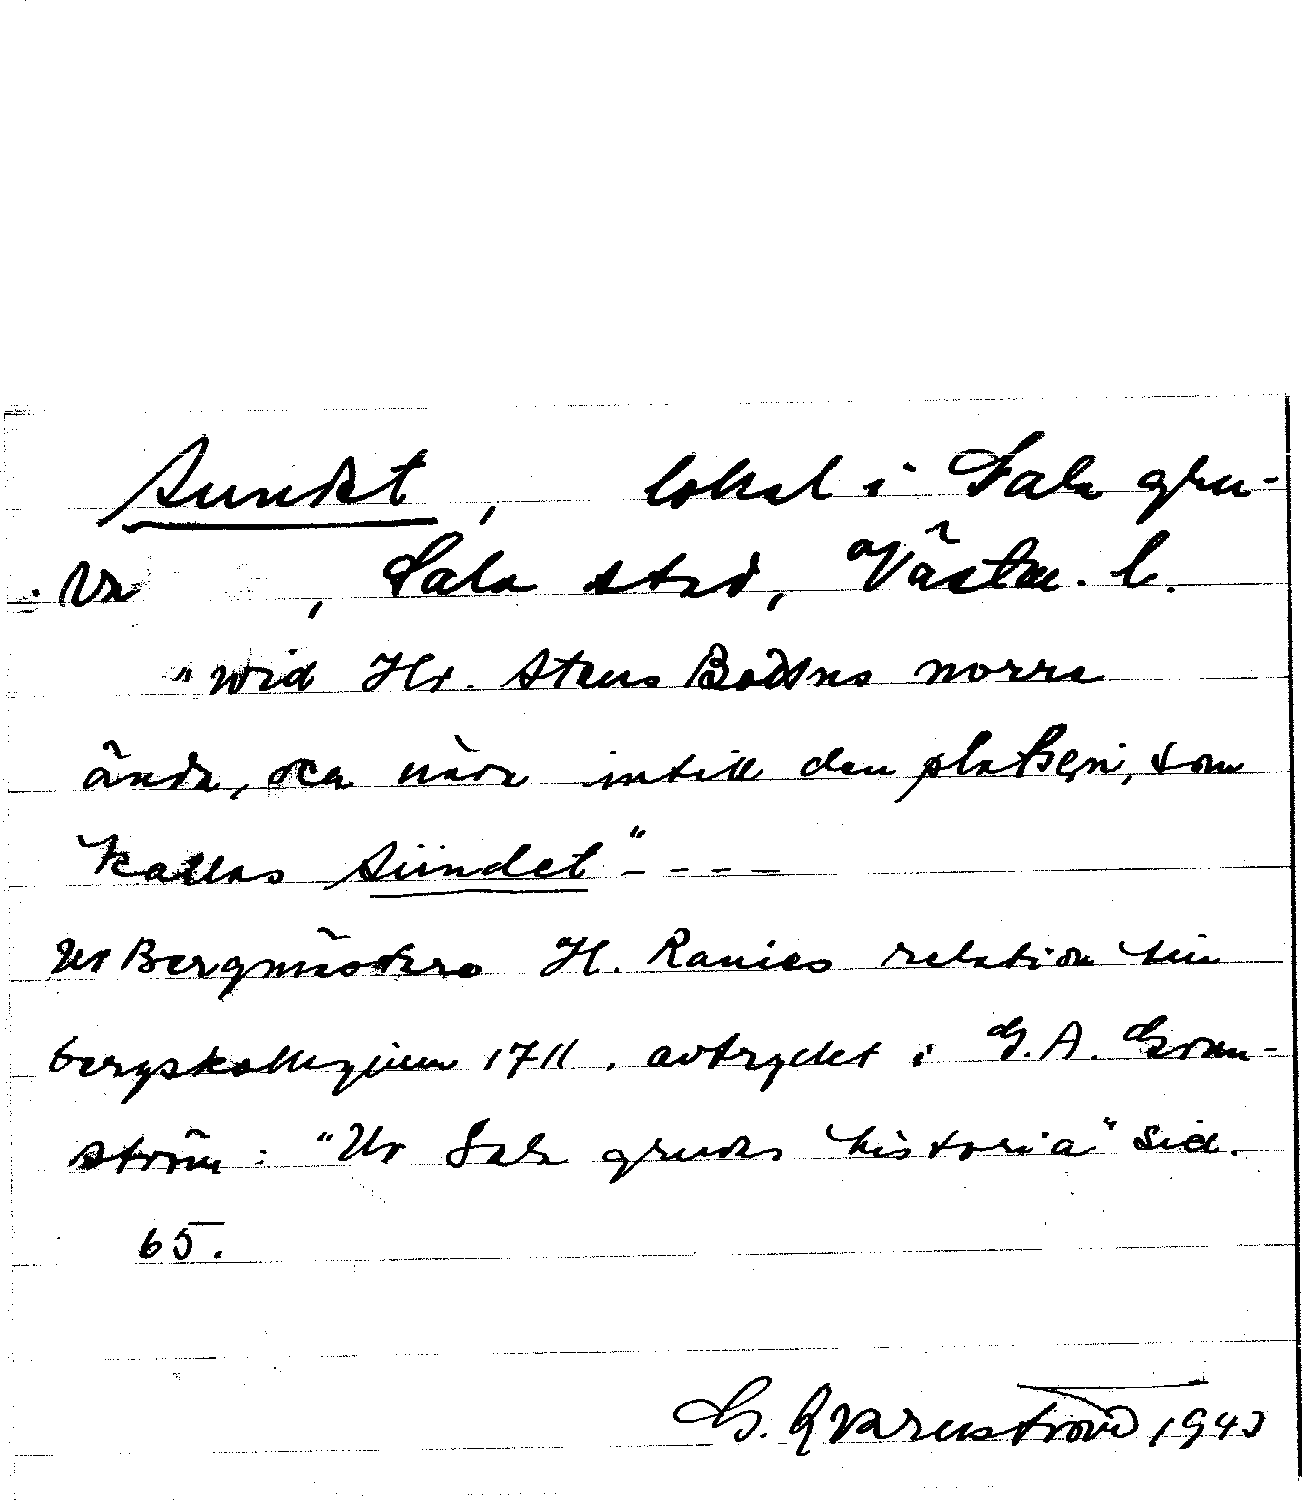 Sundet, lokal i Sala gru-
va, Sala stad, Västm. l.
"wid Hr. Stens Bottns norra
ända, och när intill den platsen, som
kallas Sundet" - - - -
Ur Bergmästare H. relation till
bergskollegium 1711, avtryckt i G. A. Gran-
ström: "Ur Sala gruvas historia" sid.
65.
G. Qvarnström 1943